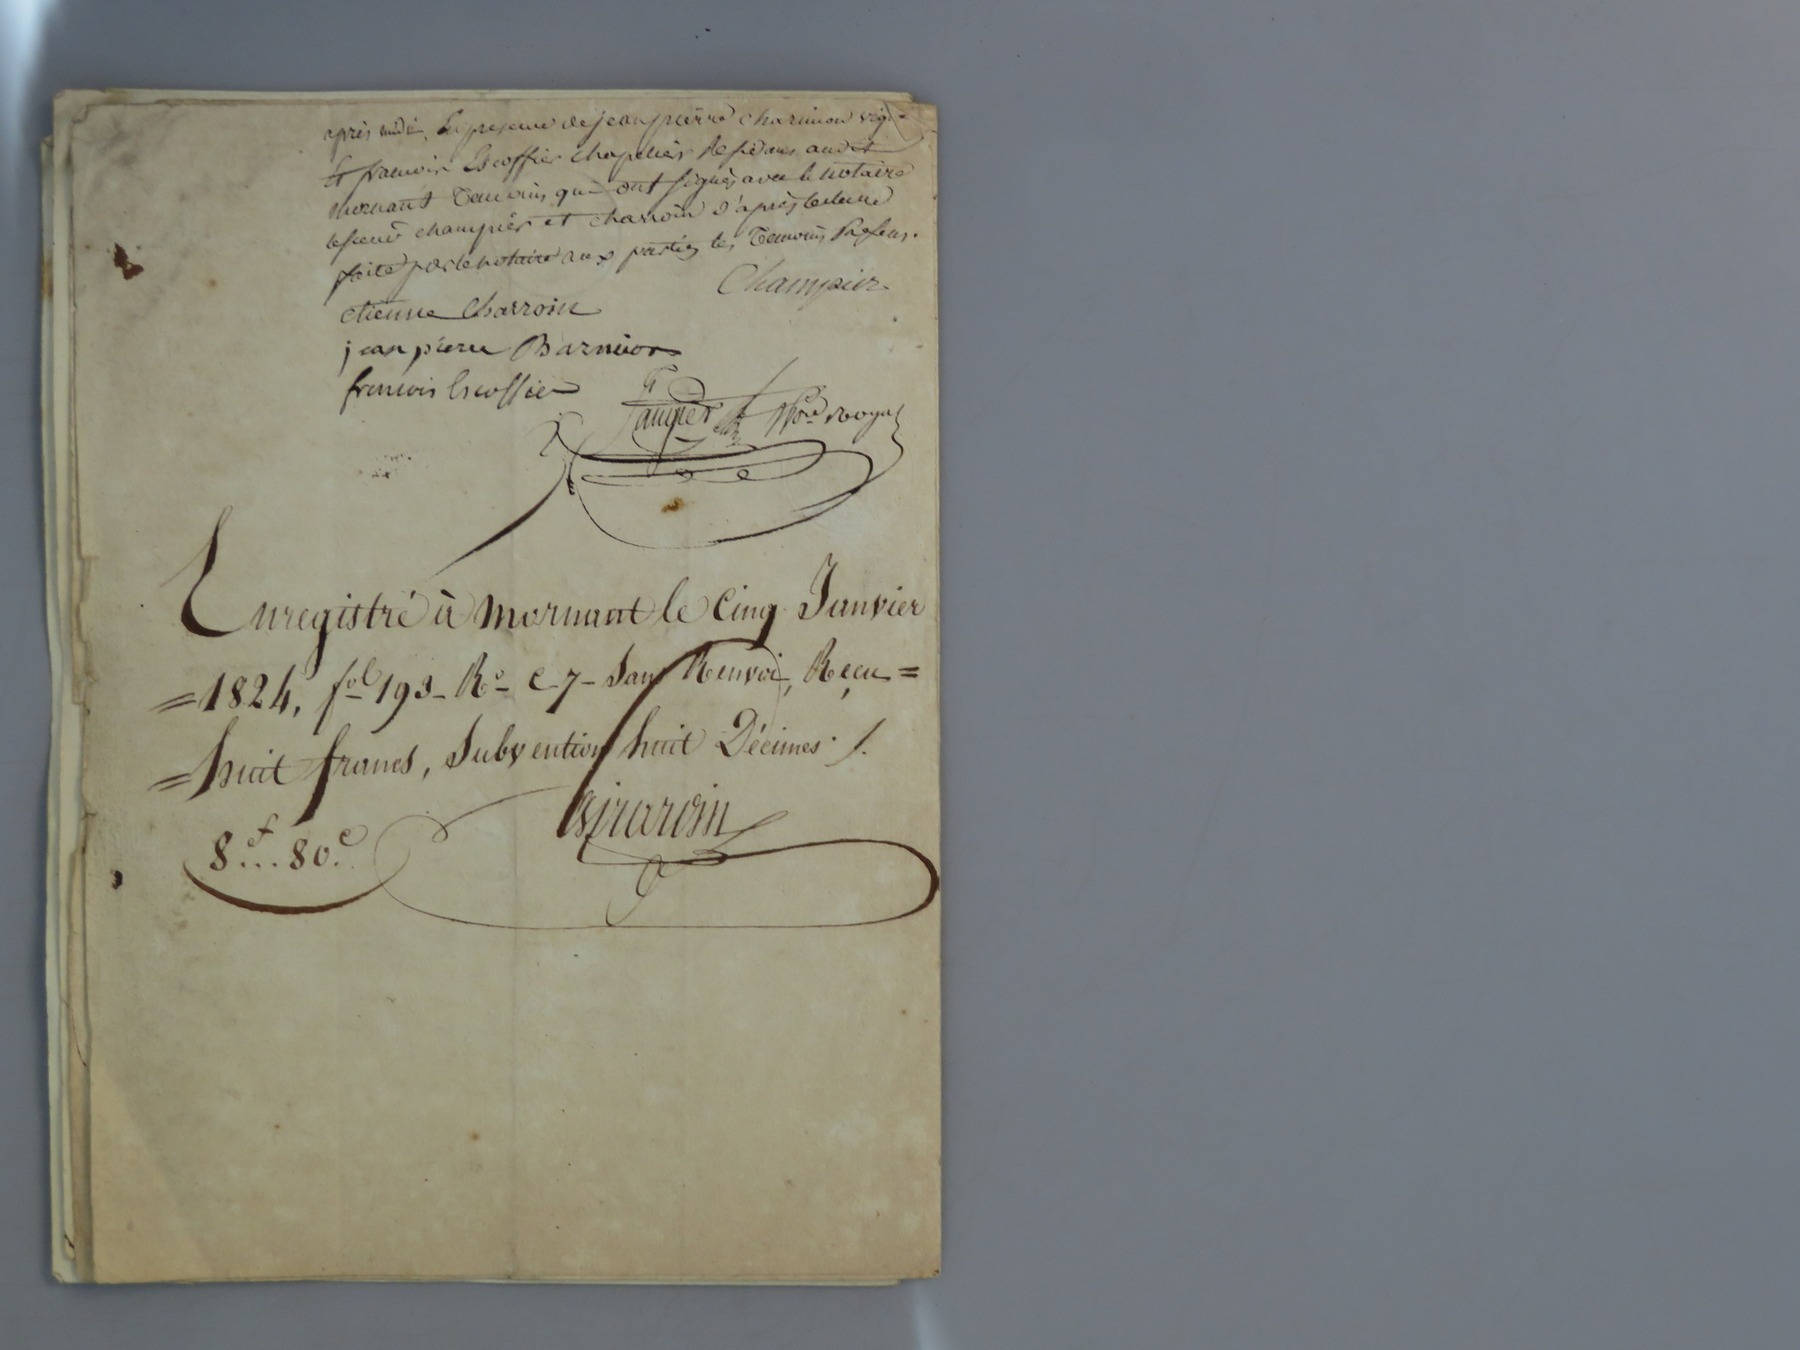 après midi, En presence de jean pierre charmion
Et francois Escoffier chapelier Residans audit
Mornant Temoins qui ont signés avec le notaire
lesieur champier et charroin d'après lecture
faite par le notaire aux parties les Temoins Presens.
Champier
etienne Charroin
jean pierre Barmion
francois Escoffier
nore royal
Enregistré à mornant le Cinq Janvier
=1824, fol 193 Ro C 7 Sans Renvoi, Reçu=
=huit francs, Subvention huit Décimes ./.
8f...80c.
Girardin